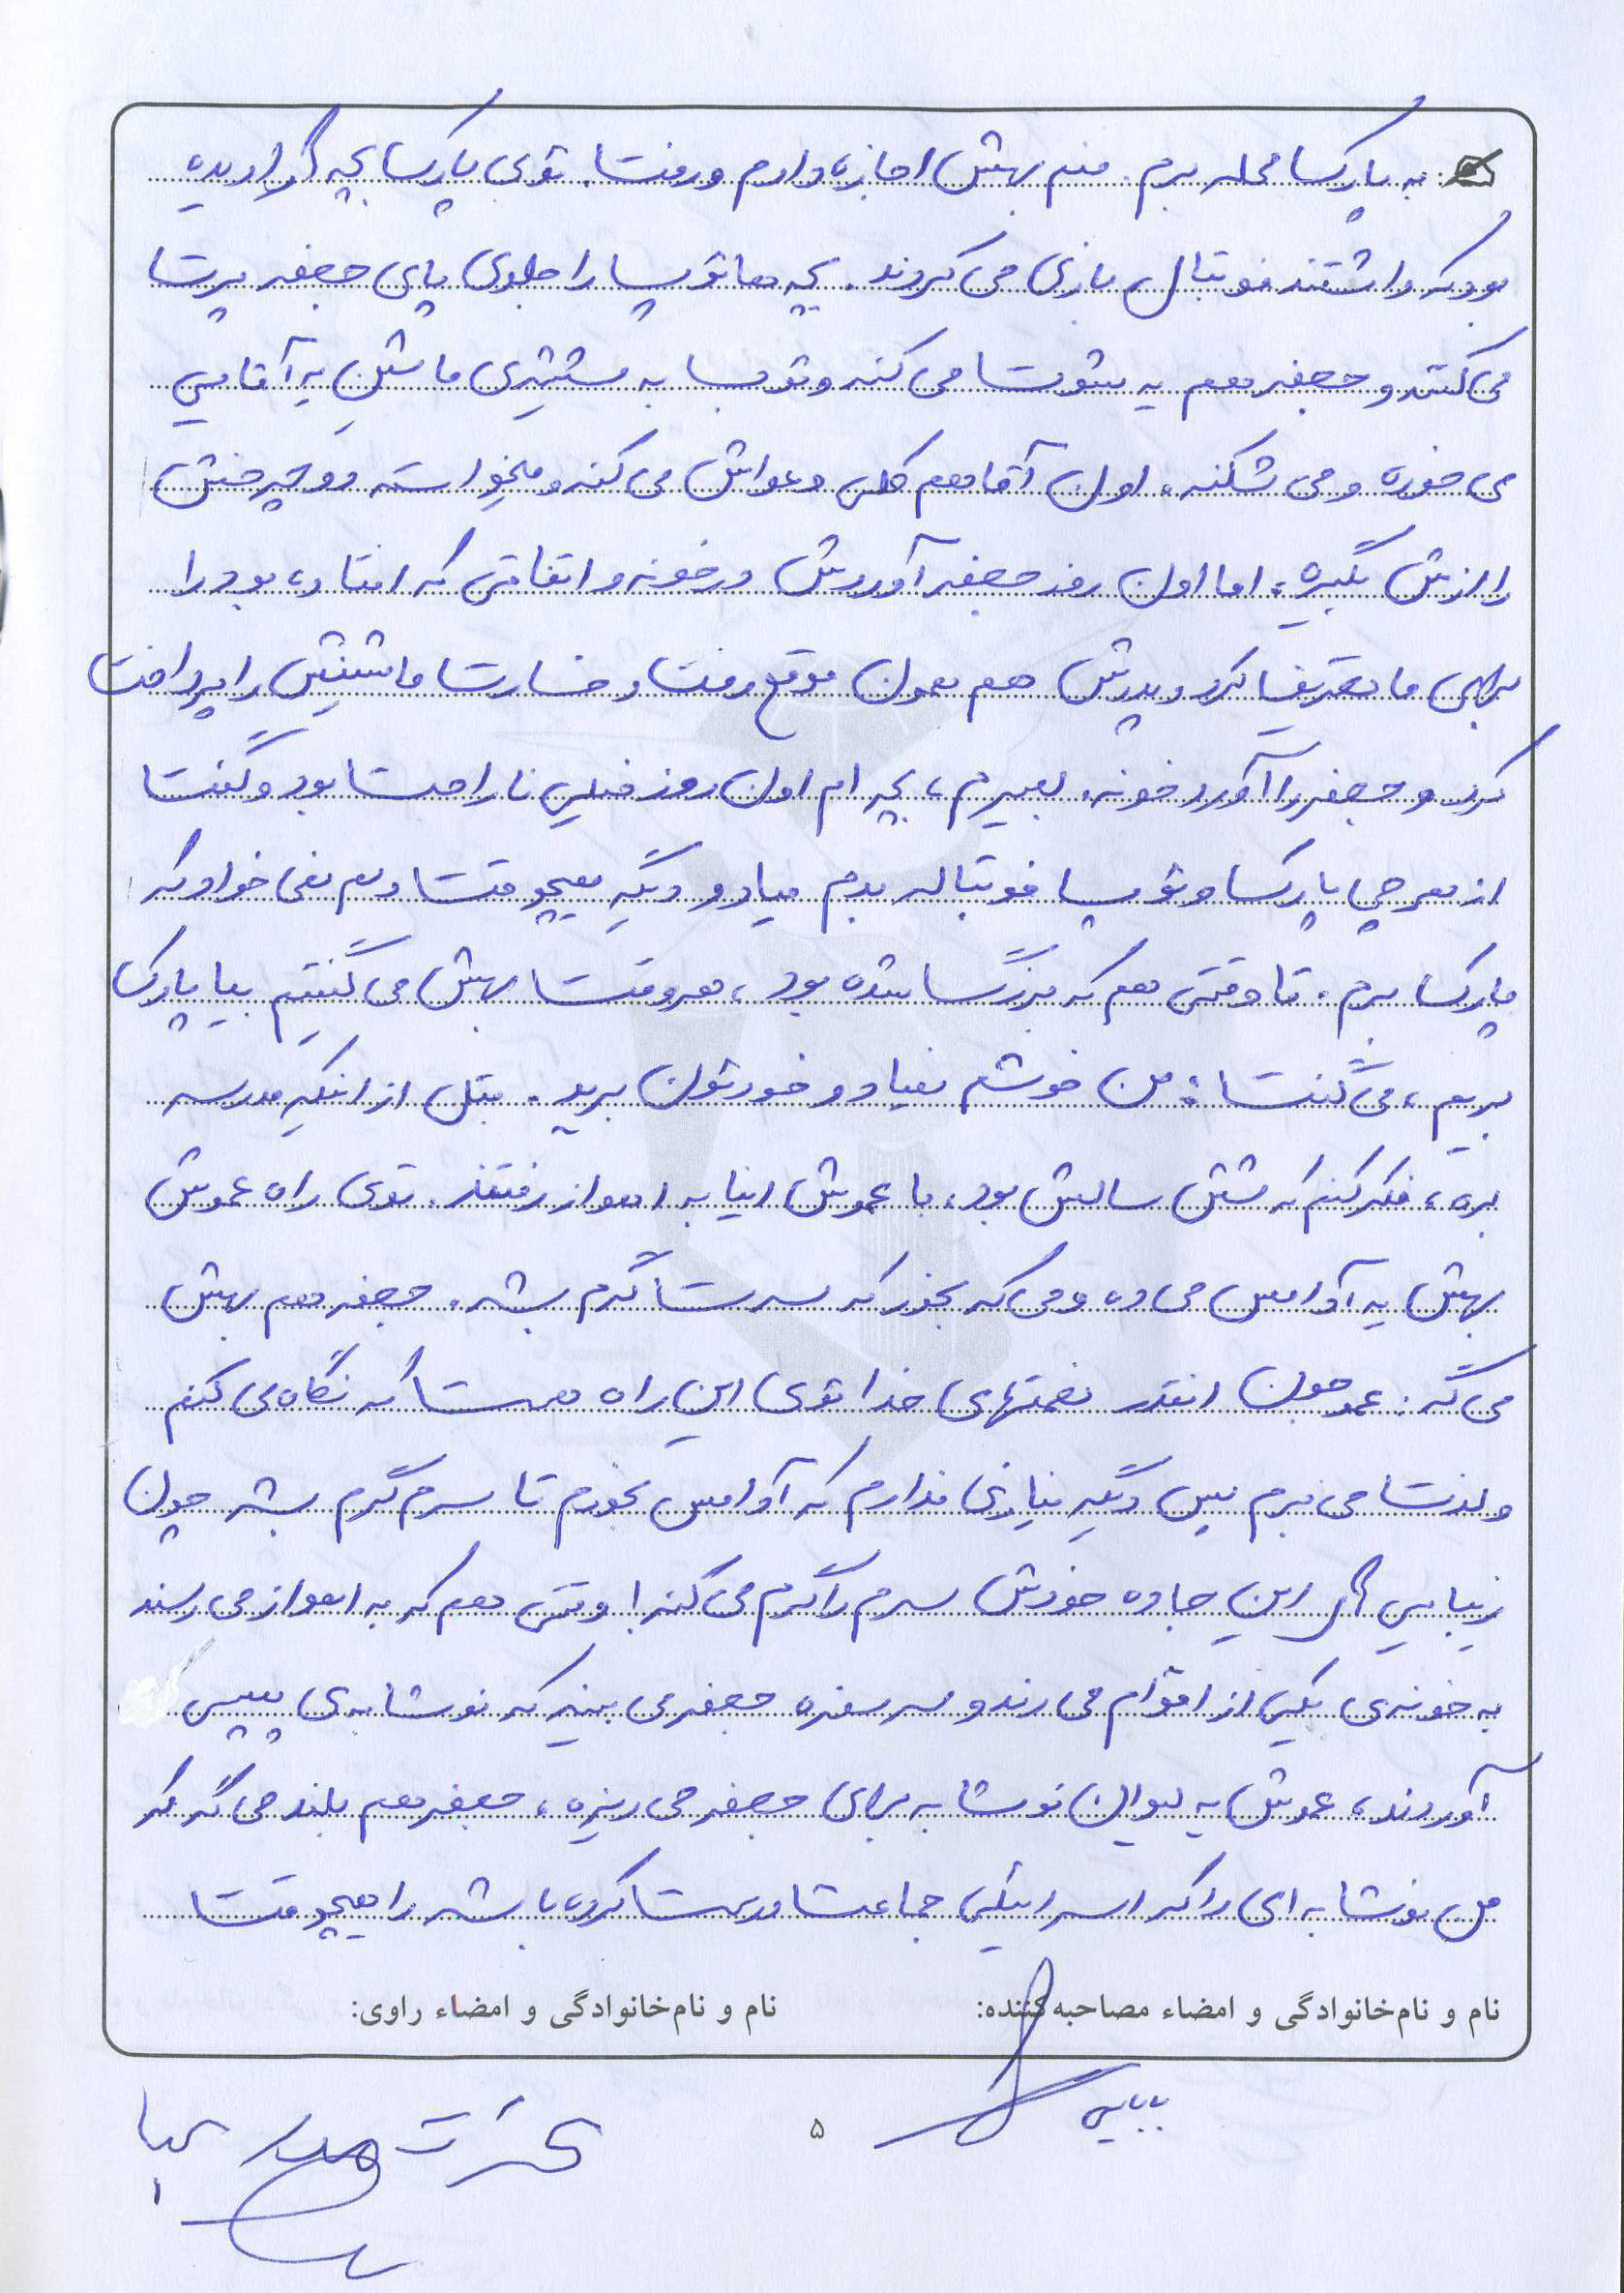 به پارک محله برم. منم بهش اجازه دادم و رفت. توی پارک بچه ها را دیده
بود که داشتند فوتبال بازی می کردند. بچه ها توپ را جلوی پای جعفر پرت
می کنند و جعفر هم یه شوت می کنه و توپ به شیشه ی ماشین یه آقایی
می خوره و می شکنه. اون آقا هم کلی دعواش می کنه و میخواسته دوچرخش
را ازش بگیره، اما اون روز جعفر آوردش در خونه و اتفاقی که افتاده بود را
برای ما تعریف کرد و پدرش هم همون موقع رفت و خسارت ماشینش را پرداخت
کرد و جعفر را آورد خونه. بمیرم، بچه ام اون روز خیلی ناراحت بود و گفت
از هر چی پارک و توپ فوتباله بدم میاد و دیگه هیچوقت دلم نمی خواد که
پارک برم. تا وقتی هم که بزرگ شده بود، هر وقت بهش می گفتیم بیا پارک
بریم، می گفت: من خوشم نمیاد و خودتون برید. قبل از اینکه مدرسه
بره، فکر کنم که شش سالش بود، با عموش اینا به اهواز رفتند. توی راه عموش
بهش یه آدامس می ده و می که بخور که سرت گرم بشه. جعفر هم بهش
می گه: عموجون انقدر نعمتهای خدا توی این راه هست که نگاه می کنم
و لذت می برم پس دیگه نیازی ندارم که آدامس بخورم تا سرم گرم بشه چون
زیبایی های این جاده خودش سرم را گرم می کنه! وقتی هم که به اهواز می رسند
به خونه ی یکی از اقوام می رند و سر سفره جعفر می بینه که نوشابه ی پپسی
آوردند، عموش یه لیوان نوشابه برای جعفر می ریزه، جعفر هم بلند می گه که
من نوشابه ای را که اسرائیلی جماعت درست کرده باشه را هیچوقت
نام و نام‌خانوادگی و امضاء مصاحبه‌کننده:
نام و نام‌خانوادگی و امضاء راوی:
بابایی
۵